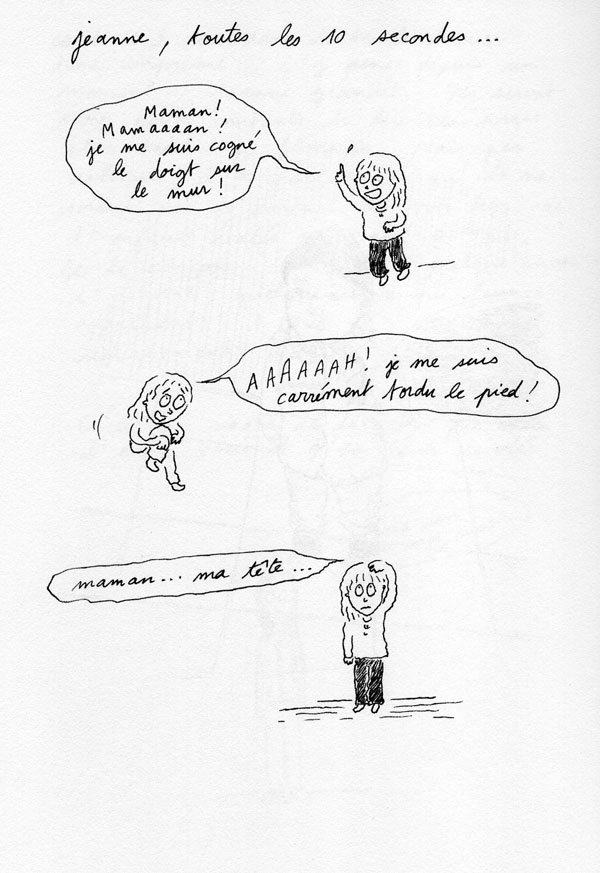 jeanne, toutes les 10 secondes...
Maman!
Mamaaaan!
je me suis cogné
le doigt sur
le mur!
AAAAAAH! je me suis
carrément tordu le pied!
maman... ma tête...